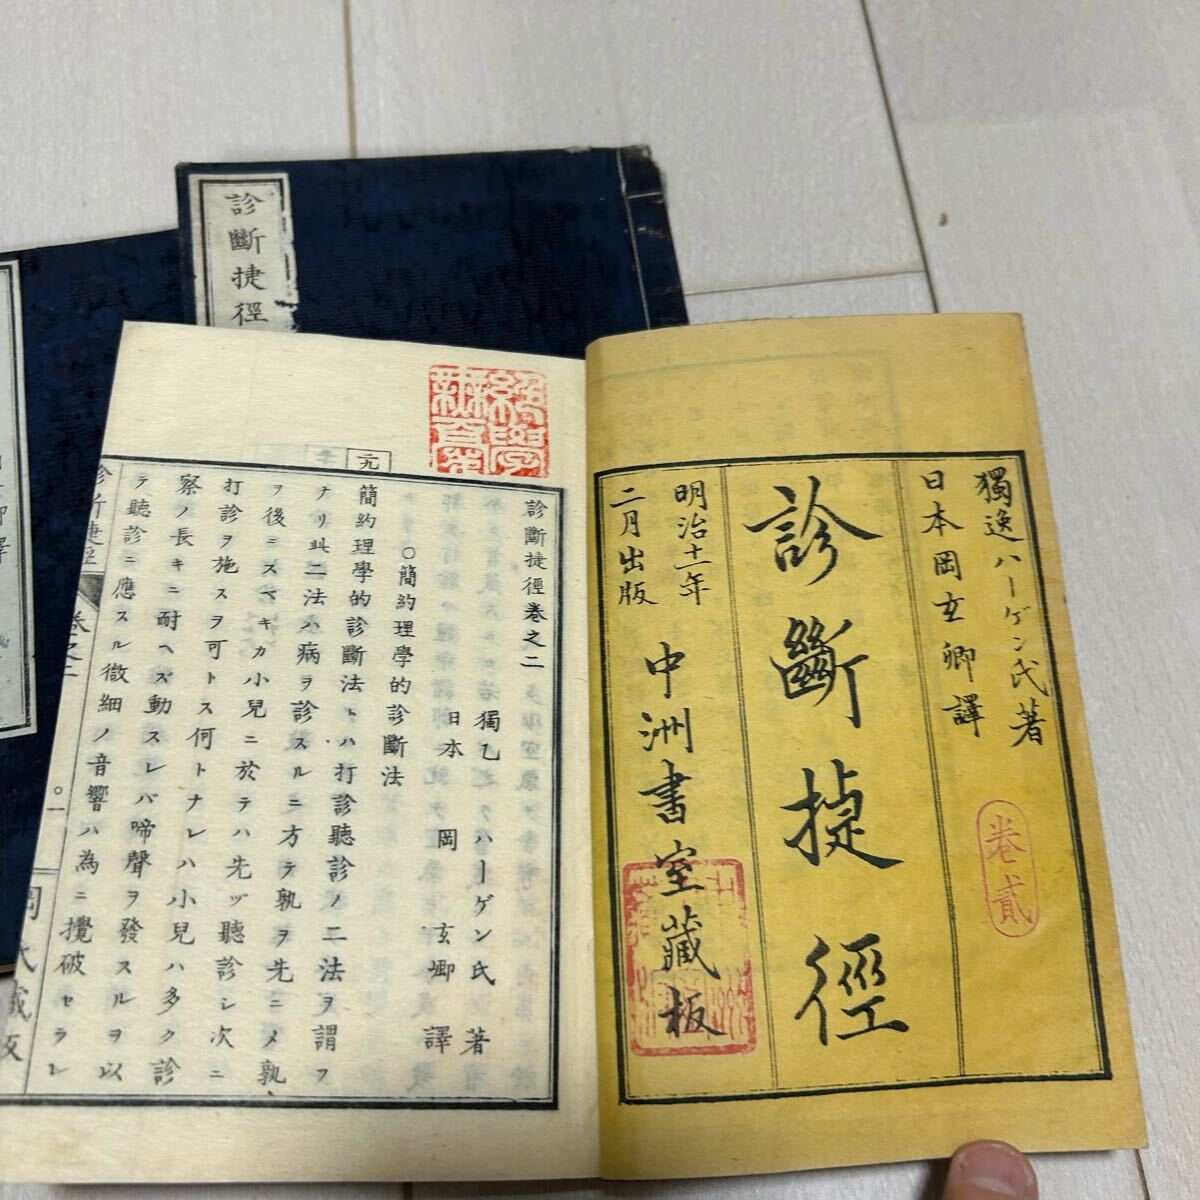 診斷捷徑
獨逸ハーゲン氏著
日本岡玄卿譯
卷貳
診斷捷徑
明治十一年
二月出版
中洲書室藏板
診斷捷徑卷之二
獨乙 ハーゲン氏 著
日本 岡 玄卿 譯
○簡約理學的診斷法
元
簡約理學的診斷法トハ打診聽診ノ二法ヲ謂フ
ナリ此二法ハ病ヲ診スルニ方テ孰ヲ先ニメ孰
ヲ後ニスベキカ小兒ニ於テハ先ツ聽診シ次ニ
打診ヲ施スヲ可トス何トナレハ小兒ハ多ク診
察ノ長キニ耐ヘズ動スレバ啼聲ヲ發スルヲ以
テ聽診ニ應スル微細ノ音響ハ為ニ攪破セラレ
診斷捷徑
卷之二
○一
岡氏藏版